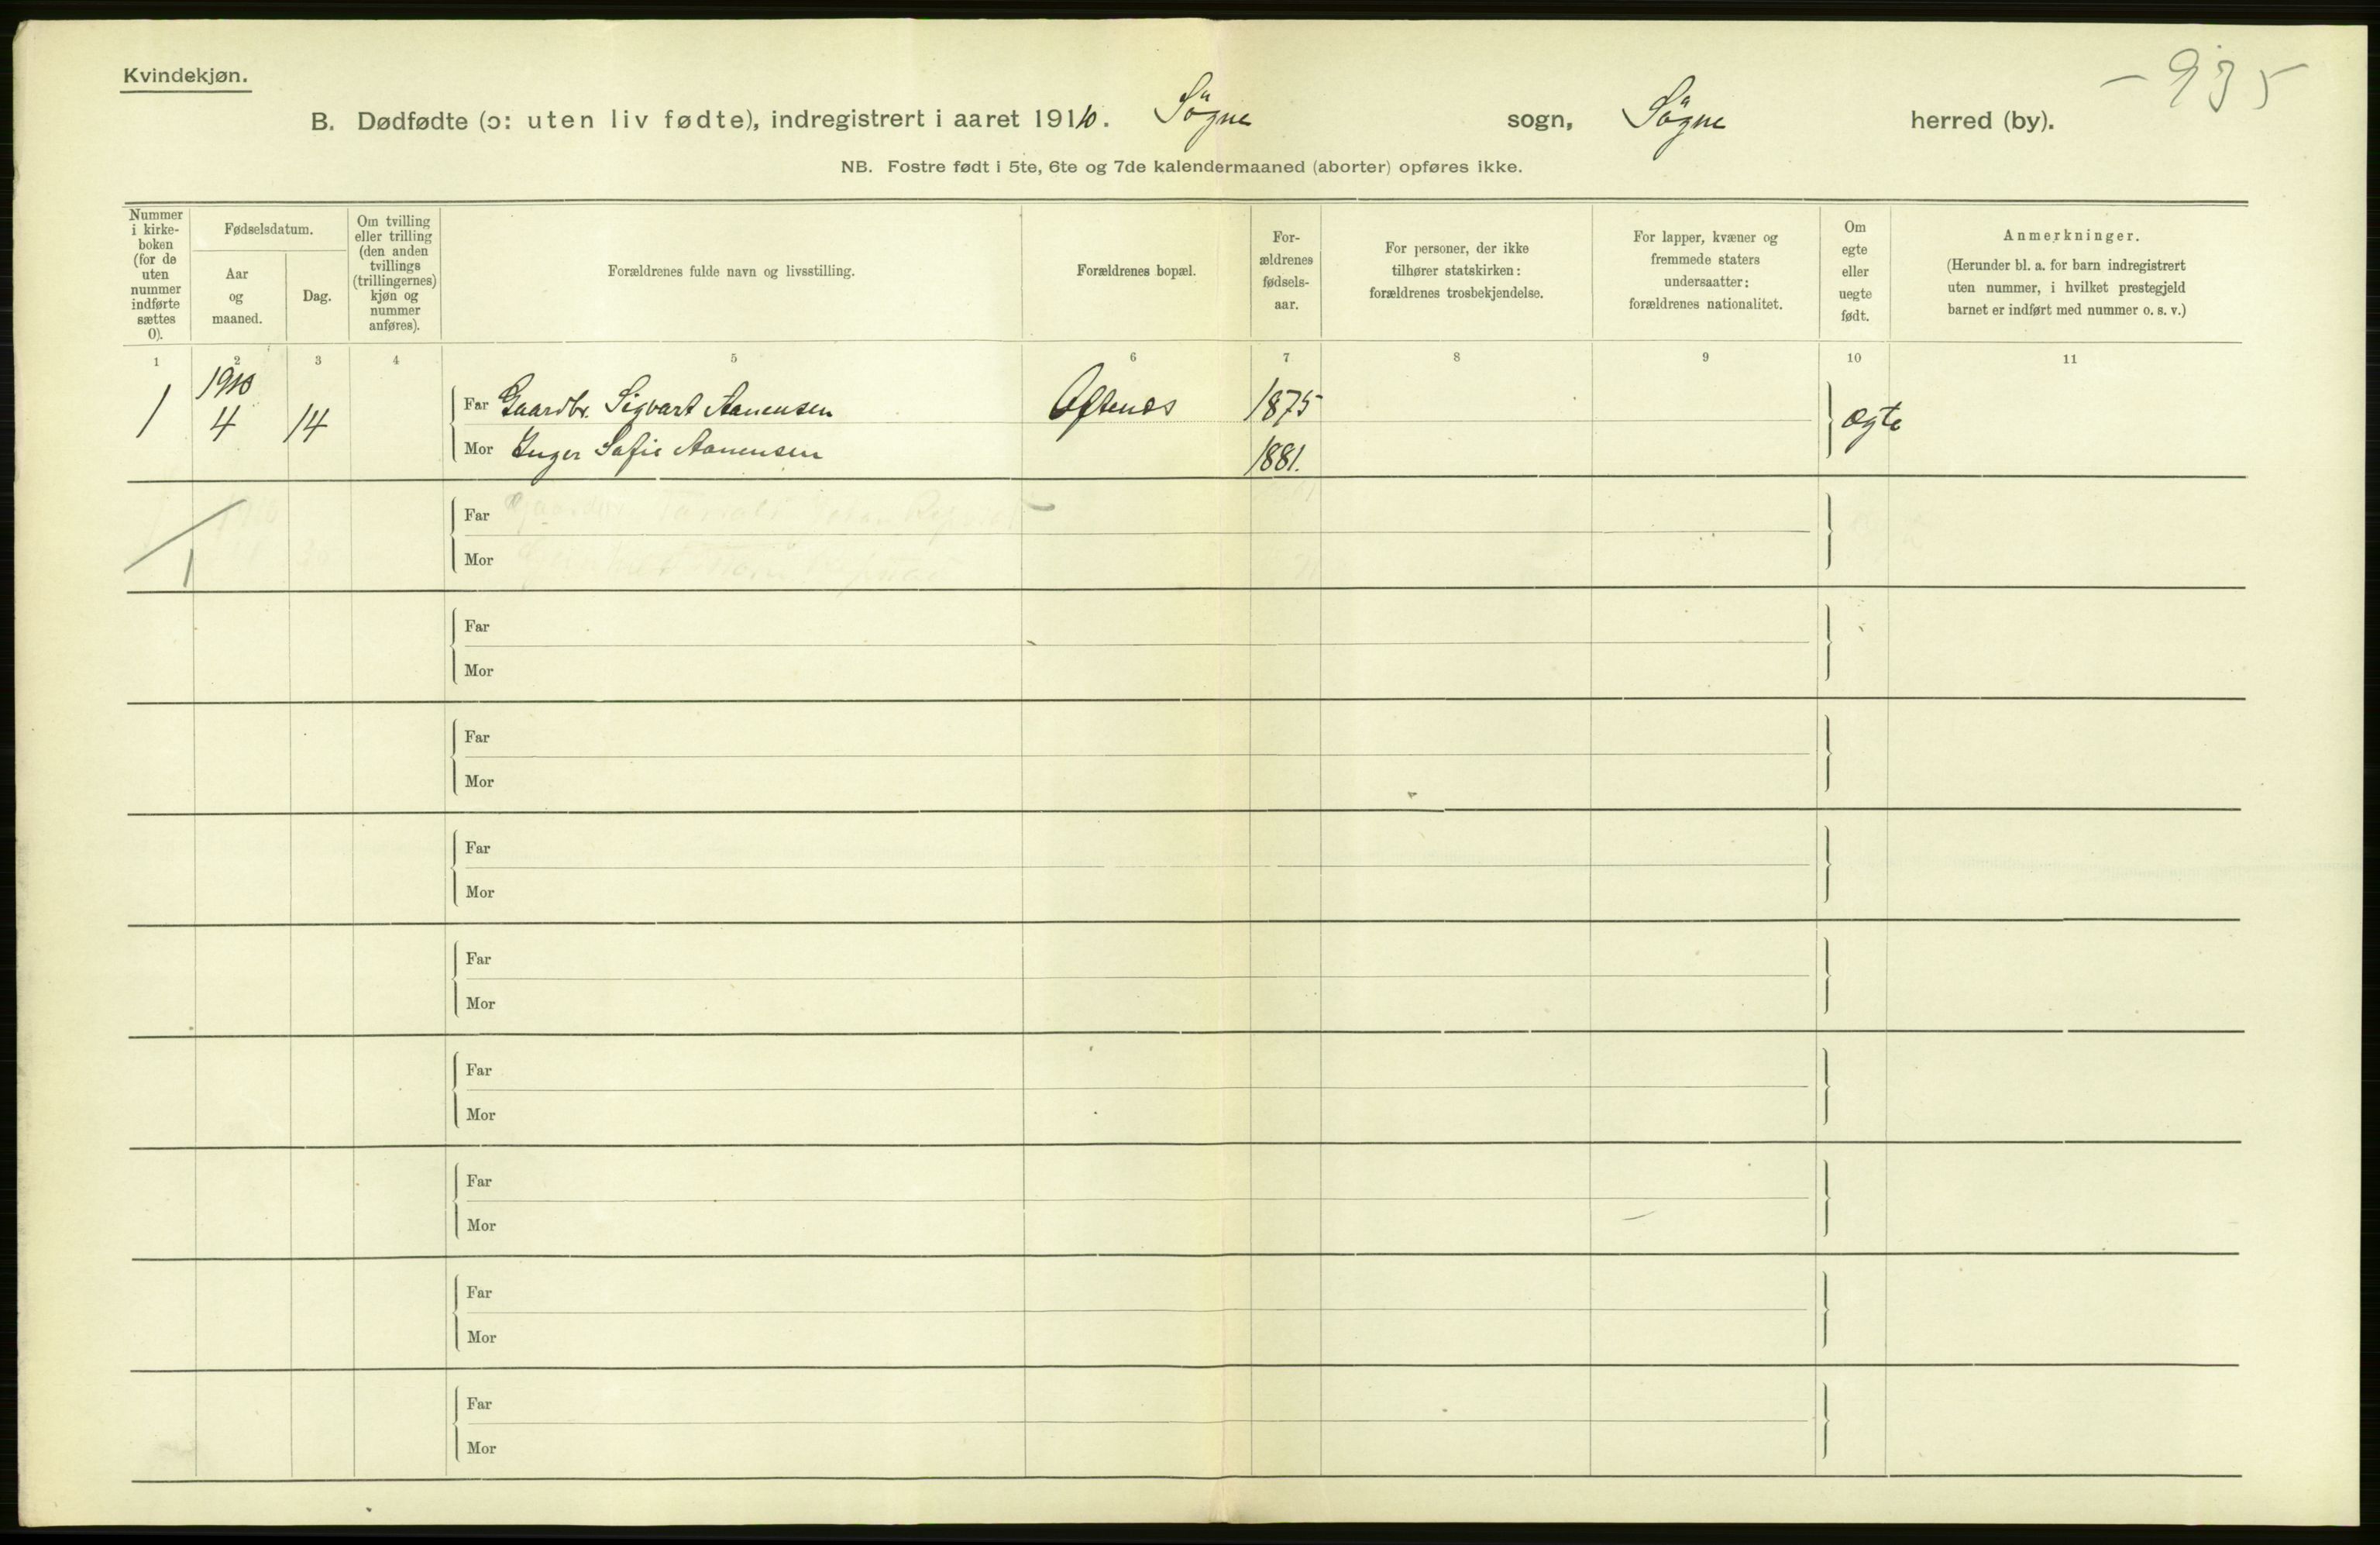 Kvindekjøn.
- 935
B. Dødfødte (ɔ: uten liv fødte), indregistrert i aaret 1910. Søgne sogn, Søgne herred (by).
NB. Fostre født i 5te, 6te og 7de kalendermaaned (aborter) opføres ikke.
Nummer
i kirke-
boken
(for de
uten
nummer
indførte
sættes
0).
Fødselsdatum.
Aar
og
maaned.
Dag.
Om tvilling
eller trilling
(den anden
tvillings
(trillingernes)
kjøn og
nummer
anføres).
Forældrenes fulde navn og livsstilling.
Forældrenes bopæl.
For-
ældrenes
fødsels-
aar.
For personer, der ikke
tilhører statskirken:
forældrenes trosbekjendelse.
For lapper, kvæner og
fremmede staters
undersaatter:
forældrenes nationalitet.
Om
egte
eller
uegte
født.
Anmerkninger.
(Herunder bl. a. for barn indregistrert
uten nummer, i hvilket prestegjeld
barnet er indført med nummer o. s. v.)
1 2 3 4 5 6 7 8 9 10 11
1910
1 4 14 Far Gaardbr. Sigvart Aanensen Oftenes 1875 egte
Mor Inger Sofie Aanensen 1881.
Far
1 Mor
Far
Mor
Far
Mor
Far
Mor
Far
Mor
Far
Mor
Far
Mor
Far
Mor
Far
Mor